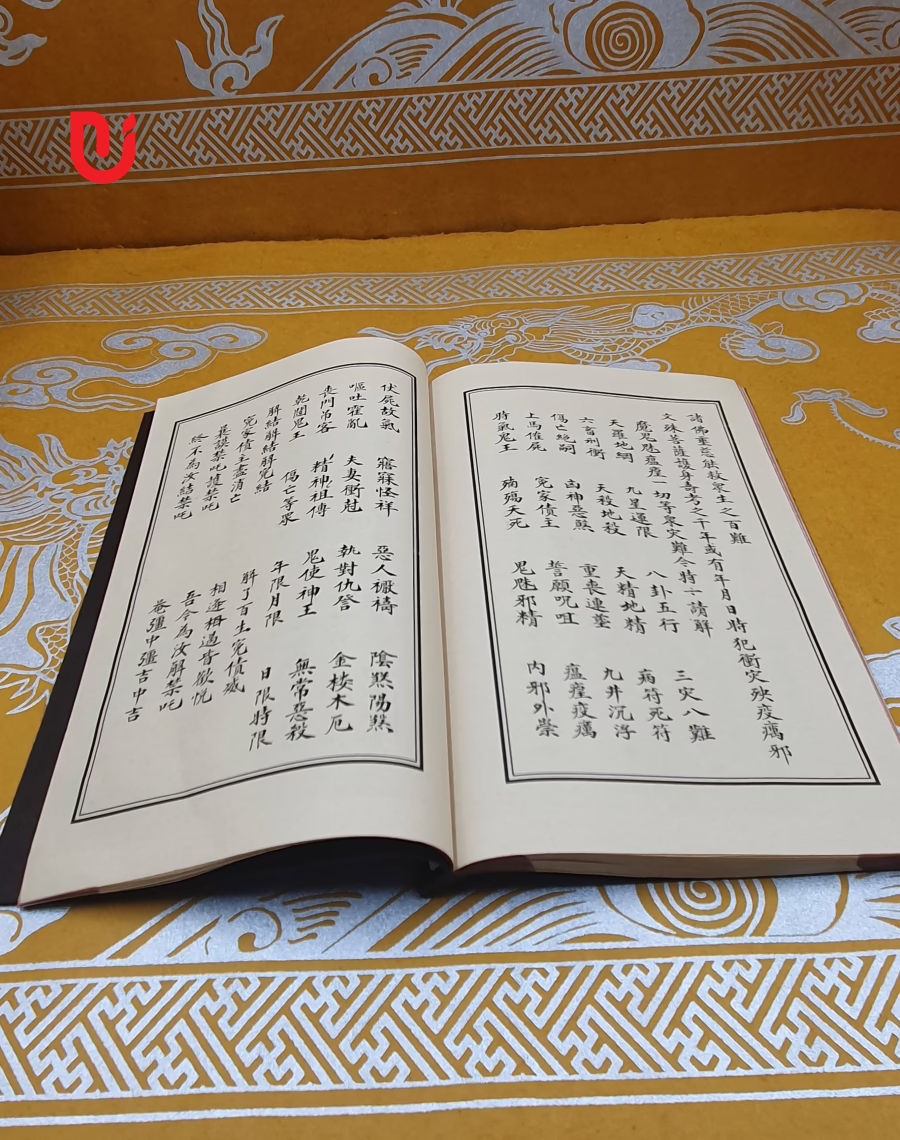 諸佛重慈能救眾生之百難
文殊菩薩護身奇考之千年或有年月日時犯衝灾殃疫癘邪
魔鬼魅瘟瘽一切等眾灾難今特一請解
天羅地網 九星運限 八卦五行 三灾八難
六畜刑衝 天殺地殺 天精地精 病符死符
傷亡絕嗣 凶神惡煞 重喪連塟 九井沉浮
上馬催屍 冤家債主 誓願呪咀 瘟瘽疫癘
時氣鬼王 殀殤夭死 鬼魅邪精 內邪外祟
伏屍故氣 寤寐怪祥 惡人禳禱 陰煞陽煞
嘔吐霍亂 夫妻衝尅 執對仇詧 金楼木厄
喪門吊客 精神祖傳 鬼使神王 無常惡殺
乾闥鬼王 傷亡等眾 年限月限 日限時限
解結解結解冤結 解了百生冤債滅
冤家債主盡消亡 相逢相遇皆歡悅
莫謨禁吃護禁吃 吾今為汝解禁吃
終不為汝結禁吃 菴彊中彊吉中吉